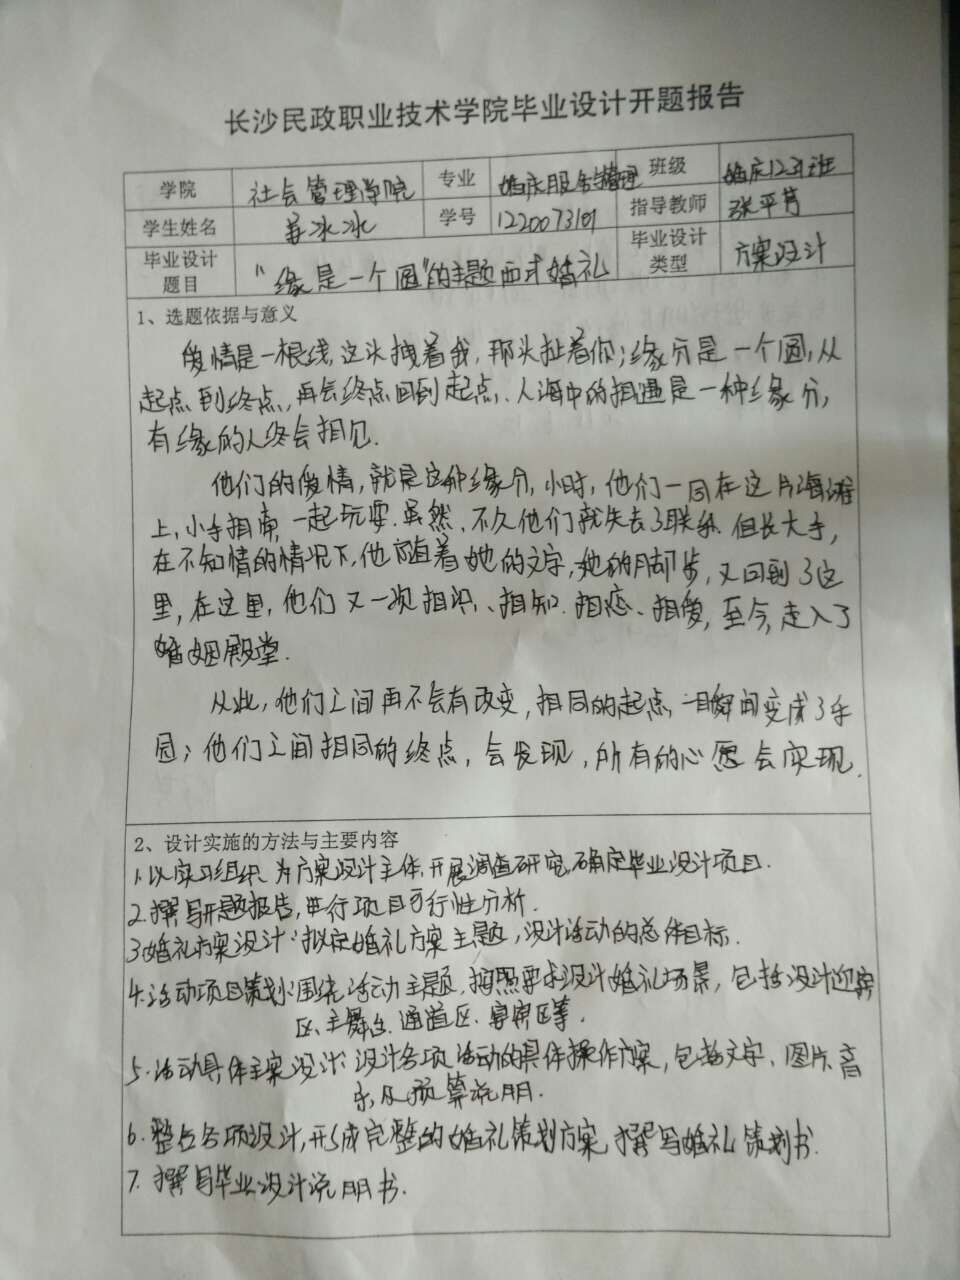 长沙民政职业技术学院毕业设计开题报告
学院 社会管理学院 专业 婚庆服务与管理 班级 婚庆1231班
学生姓名 姜冰冰 学号 1220073101 指导教师 张平芳
毕业设计题目 “缘是一个圆”的主题西式婚礼 毕业设计类型 方案设计
1、选题依据与意义
爱情是一根线,这头拽着我,那头扯着你;缘分是一个圆,从
起点到终点,再会终点回到起点、人海中的相遇是一种缘分,
有缘的人终会相见.
他们的爱情,就是这种缘分,小时,他们一同在这片海滩
上,小手相牵,一起玩耍.虽然,不久他们就失去了联系.但长大手,
在不知情的情况下,他随着她的文字,她的脚步,又回到了这
里,在这里,他们又一次相识、相知.相恋、相爱,至今,走入了
婚姻殿堂.
从此,他们之间再不会有改变,相同的起点,一瞬间变成了手
园;他们之间相同的终点,会发现,所有的心愿会实现.
2、设计实施的方法与主要内容
1.以实习组织为方案设计主体,开展调查研究,确定毕业设计项目.
2.撰写开题报告,进行项目可行性分析.
3.婚礼方案设计:拟定婚礼方案主题,设计活动的总体目标.
4.活动项目策划:围绕活动主题,按照要求设计婚礼场景,包括设计迎宾
区、主舞台.通道区、宴宾区等.
5.活动具体主案设计:设计各项活动的具体操作方案,包括文字、图片、音
乐,及预算说明.
6.整合各项设计,形成完整的婚礼策划方案,撰写婚礼策划书.
7.撰写毕业设计说明书.